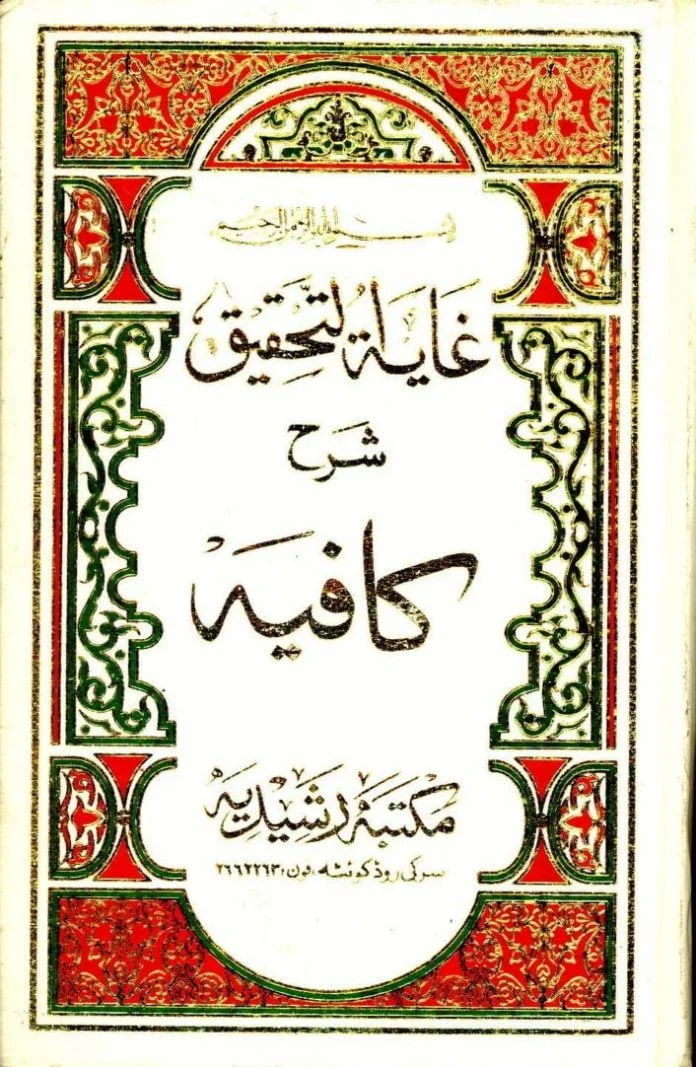 بسم الله الرحمن الرحيم
غَايَةُ التَّحقِيق
شرح
كافیه
مکتبہ رشیدیہ
سرکی روڈ کوئٹہ، فون: ۲۶۶۲۲۶۳